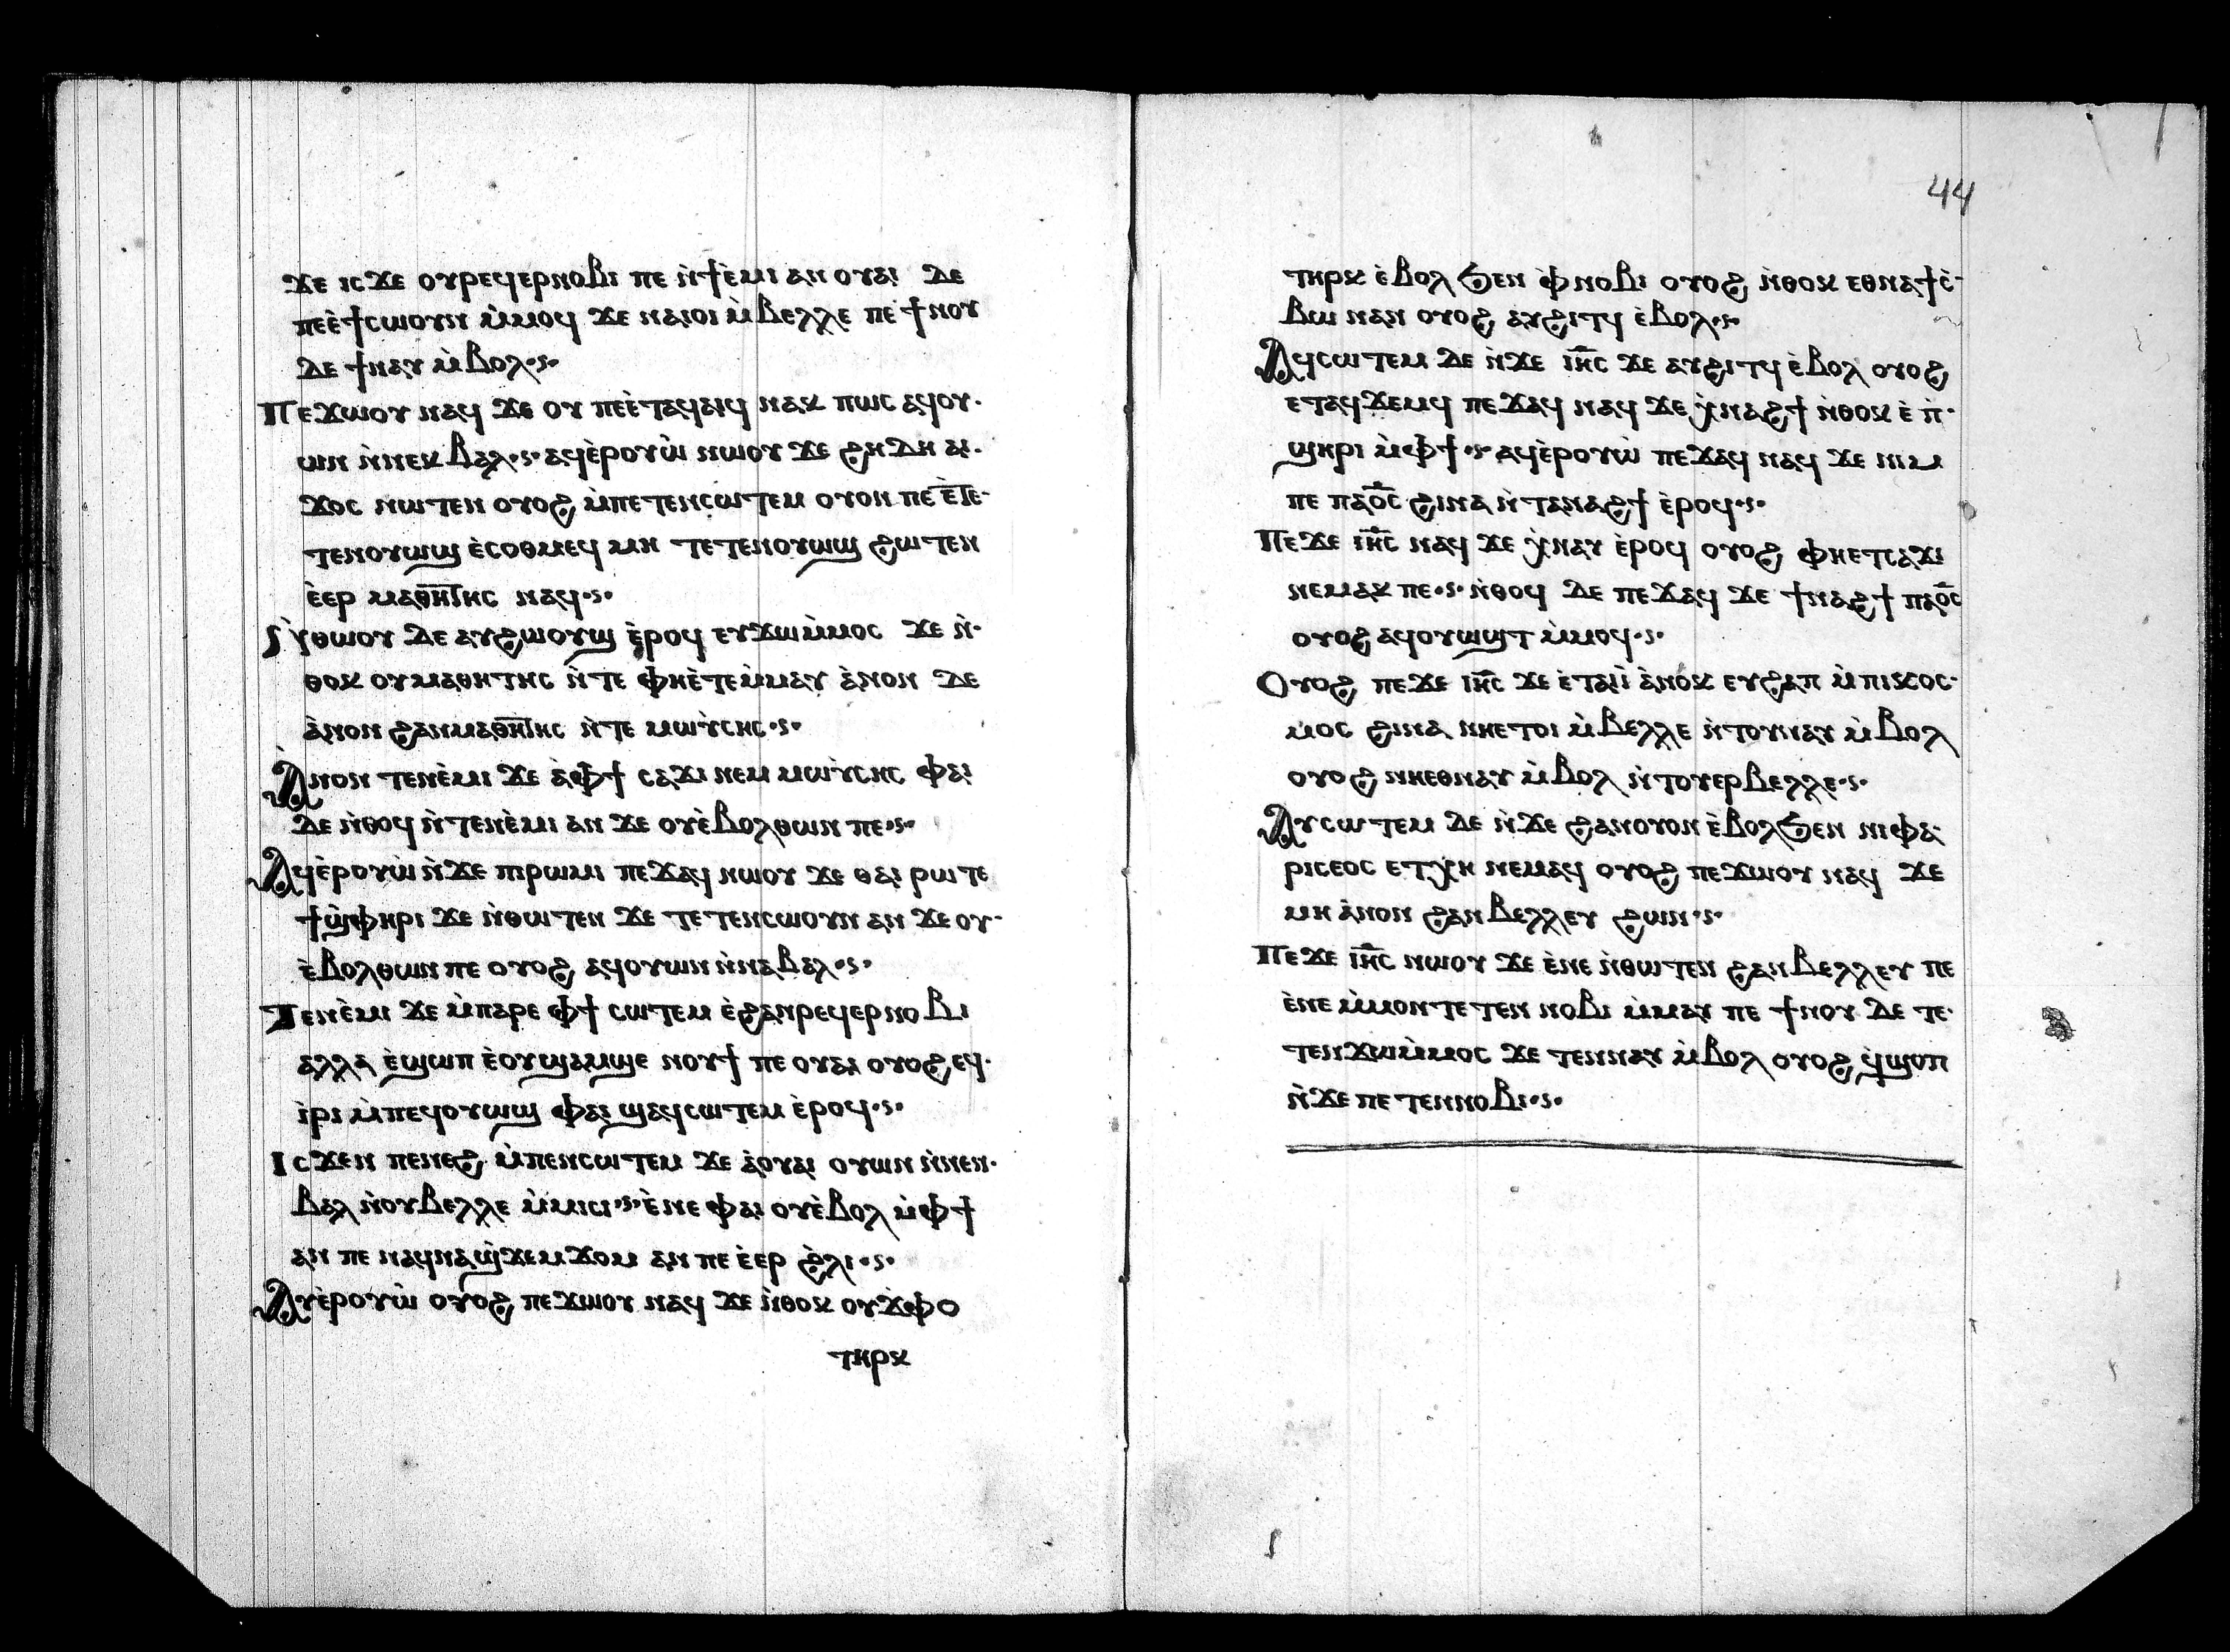 ϫⲉ ⲓⲥϫⲉ ⲟⲩⲣⲉϥⲉⲣⲛⲟⲃⲓ ⲡⲉ ⲛ̀ϯⲉ̀ⲙⲓ ⲁⲛ ⲟⲩⲁⲓ ⲇⲉ
ⲡⲉⲉ̀ϯⲥⲱⲟⲩⲛ ⲙ̀ⲙⲟϥ ϫⲉ ⲛⲁⲓⲟⲓ ⲙ̀ⲃⲉⲗⲗⲉ ⲡⲉ ϯⲛⲟⲩ
ⲇⲉ ϯⲛⲁⲩ ⲙ̀ⲃⲟⲗ·ⲋ·
Ⲡⲉϫⲱⲟⲩ ⲛⲁϥ ϫⲉ ⲟⲩ ⲡⲉⲉ̀ⲧⲁϥⲁⲓϥ ⲛⲁⲕ ⲡⲱⲥ ⲁϥⲟⲩ·
ⲱⲛ ⲛ̀ⲛⲉⲕⲃⲁⲗ·ⲋ· ⲁϥⲉ̀ⲣⲟⲩⲱ̀ ⲛⲱⲟⲩ ϫⲉ ϩⲏⲇⲏ ⲁⲓ·
ϫⲟⲥ ⲛⲱⲧⲉⲛ ⲟⲩⲟϩ ⲙ̀ⲡⲉⲧⲉⲛⲥⲱⲧⲉⲙ ⲟⲩⲟⲛ ⲡⲉ ⲉ̀ⲧⲉ·
ⲧⲉⲛⲟⲩⲱϣ ⲉ̀ⲥⲟⲑⲙⲉϥ ⲙⲏ ⲧⲉⲧⲉⲛⲟⲩⲱϣ ϩⲱⲧⲉⲛ
ⲉ̀ⲉⲣ ⲙⲁⲑⲏⲧⲏⲥ ⲛⲁϥ·ⲋ·
Ⲛ̀ⲑⲱⲟⲩ ⲇⲉ ⲁⲩϩⲱⲟⲩϣ ⲉ̀ⲣⲟϥ ⲉⲩϫⲱⲙ̀ⲙⲟⲥ ϫⲉ ⲛ̀·
ⲑⲟⲕ ⲟⲩⲙⲁⲑⲏⲧⲏⲥ ⲛ̀ⲧⲉ ⲫⲏⲉ̀ⲧⲉⲙ̀ⲙⲁⲩ ⲁ̀ⲛⲟⲛ ⲇⲉ
ⲁ̀ⲛⲟⲛ ϩⲁⲛⲙⲁⲑⲏⲧⲏⲥ ⲛ̀ⲧⲉ ⲙⲱⲩ̀ⲥⲏⲥ·ⲋ·
Ⲁ̀ⲛⲟⲛ ⲧⲉⲛⲉ̀ⲙⲓ ϫⲉ ⲁ̀ⲫϯ ⲥⲁϫⲓ ⲛⲉⲙ ⲙⲱⲩ̀ⲥⲏⲥ ⲫⲁⲓ
ⲇⲉ ⲛ̀ⲑⲟϥ ⲛ̀ⲧⲉⲛⲉ̀ⲙⲓ ⲁⲛ ϫⲉ ⲟⲩⲉ̀ⲃⲟⲗⲑⲱⲛ ⲡⲉ·ⲋ·
Ⲁϥⲉ̀ⲣⲟⲩⲱ̀ ⲛ̀ϫⲉ ⲡⲓⲣⲱⲙⲓ ⲡⲉϫⲁϥ ⲛⲱⲟⲩ ϫⲉ ⲑⲁⲓ ⲣⲱ ⲧⲉ
ϯϣ̀ⲫⲏⲣⲓ ϫⲉ ⲛ̀ⲑⲱⲧⲉⲛ ϫⲉ ⲧⲉⲧⲉⲛⲥⲱⲟⲩⲛ ⲁⲛ ϫⲉ ⲟⲩ·
ⲉ̀ⲃⲟⲗⲑⲱⲛ ⲡⲉ ⲟⲩⲟϩ ⲁϥⲟⲩⲱⲛ ⲛ̀ⲛⲁⲃⲁⲗ·ⲋ·
Ⲧⲉⲛⲉ̀ⲙⲓ ϫⲉ ⲙ̀ⲡⲁⲣⲉ ⲫϯ ⲥⲱⲧⲉⲙ ⲉ̀ϩⲁⲛⲣⲉϥⲉⲣⲛⲟⲃⲓ
ⲁⲗⲗⲁ ⲉ̀ϣⲱⲡ ⲉ̀ⲟⲩϣⲁⲙϣⲉ ⲛⲟⲩϯ ⲡⲉ ⲟⲩⲁⲓ ⲟⲩⲟϩ ⲉϥ·
ⲓ̀ⲣⲓ ⲙ̀ⲡⲉϥⲟⲩⲱϣ ⲫⲁⲓ ϣⲁϥⲥⲱⲧⲉⲙ ⲉ̀ⲣⲟϥ·ⲋ·
Ⲓⲥϫⲉⲛ ⲡⲉⲛⲉϩ ⲙ̀ⲡⲉⲛⲥⲱⲧⲉⲙ ϫⲉ ⲁ̀ⲟⲩⲁⲓ ⲟⲩⲱⲛ ⲛ̀ⲛⲉⲛ·
ⲃⲁⲗ ⲛ̀ⲟⲩⲃⲉⲗⲗⲉ ⲙ̀ⲙⲓⲥⲓ·ⲋ· ⲉ̀ⲛⲉ ⲫⲁⲓ ⲟⲩⲉ̀ⲃⲟⲗ ⲙ̀ⲫϯ
ⲁⲛ ⲡⲉ ⲛⲁϥⲛⲁϣ̀ϫⲉⲙϫⲟⲙ ⲁⲛ ⲡⲉ ⲉ̀ⲉⲣ ϩ̀ⲗⲓ·ⲋ·
Ⲁⲩⲉ̀ⲣⲟⲩⲱ̀ ⲟⲩⲟϩ ⲡⲉϫⲱⲟⲩ ⲛⲁϥ ϫⲉ ⲛ̀ⲑⲟⲕ ⲟⲩϫ̀ⲫⲟ
ⲧⲏⲣⲕ
44
ⲧⲏⲣⲕ ⲉ̀ⲃⲟⲗ ϧⲉⲛ ⲫ̀ⲛⲟⲃⲓ ⲟⲩⲟϩ ⲛ̀ⲑⲟⲕ ⲉⲑⲛⲁϯⲥ̀·
ⲃⲱ ⲛⲁⲛ ⲟⲩⲟϩ ⲁⲩϩⲓⲧϥ ⲉ̀ⲃⲟⲗ·ⲋ·
Ⲁϥⲥⲱⲧⲉⲙ ⲇⲉ ⲛ̀ϫⲉ ⲓⲏ̅ⲥ ϫⲉ ⲁⲩϩⲓⲧϥ ⲉ̀ⲃⲟⲗ ⲟⲩⲟϩ
ⲉⲧⲁϥϫⲉⲙϥ ⲡⲉϫⲁϥ ⲛⲁϥ ϫⲉ ⲭ̀ⲛⲁϩϯ ⲛ̀ⲑⲟⲕ ⲉ̀ ⲡ̀·
ϣⲏⲣⲓ ⲙ̀ⲫϯ·ⲋ· ⲁϥⲉ̀ⲣⲟⲩⲱ̀ ⲡⲉϫⲁϥ ⲛⲁϥ ϫⲉ ⲛⲓⲙ
ⲡⲉ ⲡⲁⲟ̅ⲥ̅ ϩⲓⲛⲁ ⲛ̀ⲧⲁⲛⲁϩϯ ⲉ̀ⲣⲟϥ·ⲋ·
Ⲡⲉϫⲉ ⲓⲏ̅ⲥ ⲛⲁϥ ϫⲉ ⲭ̀ⲛⲁⲩ ⲉ̀ⲣⲟϥ ⲟⲩⲟϩ ⲫⲏⲉⲧⲥⲁϫⲓ
ⲛⲉⲙⲁⲕ ⲡⲉ·ⲋ· ⲛ̀ⲑⲟϥ ⲇⲉ ⲡⲉϫⲁϥ ϫⲉ ϯⲛⲁϩϯ ⲡⲁⲟ̅ⲥ̅
ⲟⲩⲟϩ ⲁϥⲟⲩⲱϣⲧ ⲙ̀ⲙⲟϥ·ⲋ·
Ⲟⲩⲟϩ ⲡⲉϫⲉ ⲓⲏ̅ⲥ ϫⲉ ⲉ̀ⲧⲁⲓⲓ̀ ⲁ̀ⲛⲟⲕ ⲉⲩϩⲁⲡ ⲙ̀ⲡⲓⲕⲟⲥ·
ⲙⲟⲥ ϩⲓⲛⲁ ⲛⲏⲉⲧⲟⲓ ⲙ̀ⲃⲉⲗⲗⲉ ⲛ̀ⲧⲟⲩⲛⲁⲩ ⲙ̀ⲃⲟⲗ
ⲟⲩⲟϩ ⲛⲏⲉⲑⲛⲁⲩ ⲙ̀ⲃⲟⲗ ⲛ̀ⲧⲟⲩⲉⲣⲃⲉⲗⲗⲉ·ⲋ·
Ⲁⲩⲥⲱⲧⲉⲙ ⲇⲉ ⲛ̀ϫⲉ ϩⲁⲛⲟⲩⲟⲛ ⲉ̀ⲃⲟⲗϧⲉⲛ ⲛⲓⲫⲁ·
ⲣⲓⲥⲉⲟⲥ ⲉⲧⲭⲏ ⲛⲉⲙⲁϥ ⲟⲩⲟϩ ⲡⲉϫⲱⲟⲩ ⲛⲁϥ ϫⲉ
ⲙⲏ ⲁ̀ⲛⲟⲛ ϩⲁⲛ ⲃⲉⲗⲗⲉⲩ ϩⲱⲛ·ⲋ·
Ⲡⲉϫⲉ ⲓⲏ̅ⲥ ⲛⲱⲟⲩ ϫⲉ ⲉ̀ⲛⲉ ⲛ̀ⲑⲱⲧⲉⲛ ϩⲁⲛⲃⲉⲗⲗⲉⲩ ⲡⲉ
ⲉ̀ⲛⲉ ⲙ̀ⲙⲟⲛⲧⲉⲧⲉⲛ ⲛⲟⲃⲓ ⲙ̀ⲙⲁⲩ ⲡⲉ ϯⲛⲟⲩ ⲇⲉ ⲧⲉ·
ⲧⲉⲛϫⲱⲙ̀ⲙⲟⲥ ϫⲉ ⲧⲉⲛⲛⲁⲩ ⲙ̀ⲃⲟⲗ ⲟⲩⲟϩ ϥ̀ϣⲟⲡ
ⲛ̀ϫⲉ ⲡⲉⲧⲉⲛⲛⲟⲃⲓ·ⲋ·